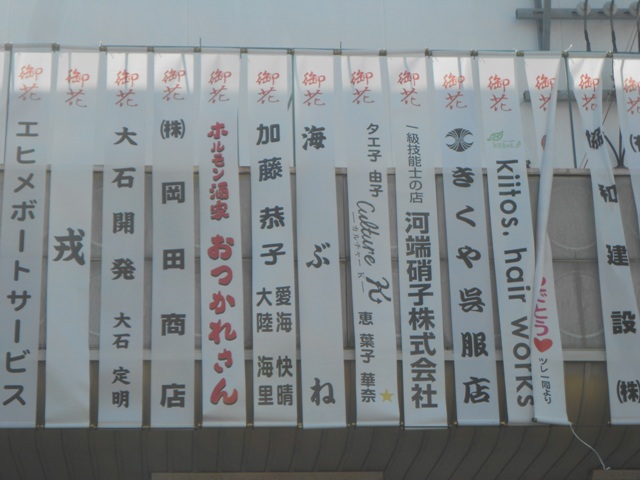 御花
エヒメボートサービス
御花
戎
御花
大石開発
大石 定明
御花
㈱岡田商店
御花
ホルモン酒家
おつかれさん
御花
加藤恭子
愛海 快晴
大陸 海里
御花
海ぶね
御花
タエ子 由子
Culture K
―カルチャー ズ―
恵 葉子 華奈
御花
一級技能士の店
河端硝子株式会社
御花
きくや呉服店
御花
kiitos. hair works
御花
でとう
ツレ一同より
御花
協和建設㈱
御花